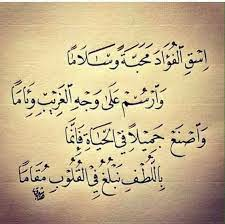 اِسْقِ الْفُؤَادَ مَحَبَّةً وَسَلَامًا
وَارْسُمْ عَلَى وَجْهِ الْغَرِيبِ وِئَامًا
وَاصْنَعْ جَمِيلًا فِي الْحَيَاةِ فَإِنَّمَا
بِاللُّطْفِ نَبْلُغُ فِي الْقُلُوبِ مُقَامًا